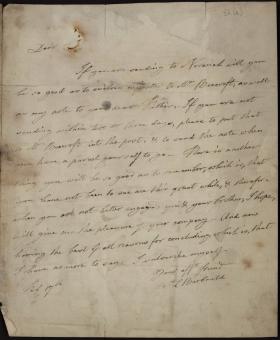 Dear
If you are sending to Norwich will you
be so good as to enclose to Mr Beecroft, as well
as my note to your dear Father. If you are not
sending within two or three days, please to put that
to Mr Beecroft into the post, & to send the note when
you have a parcel yourself to go. There is another
thing you will be so good as to remember, which is, that
you have not been to see me this great while, & therefore
when you are not better engaged, you & your brother, I hope,
will give me the pleasure of your company. And now
having the best of all reasons for concluding, which is, that
I have no more to say, I subscribe myself
Your aff friend
A L Barbauld